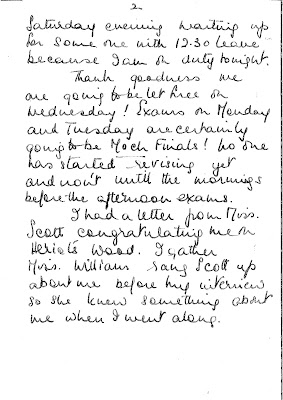 2
Saturday evening waiting up
for some one with 12.30 leave
because I am on duty tonight.
Thank goodness we
are going to be let free on
Wednesday! Exams on Monday
and Tuesday are certainly
going to be Mock Finals! No one
has started revising yet
and won't until the mornings
before the afternoon exams.
I had a letter from Miss.
Scott congratulating me on
Heriots Wood. I gather
Miss. Williams rang Scott up
about me before my interview
so she knew something about
me when I went along.